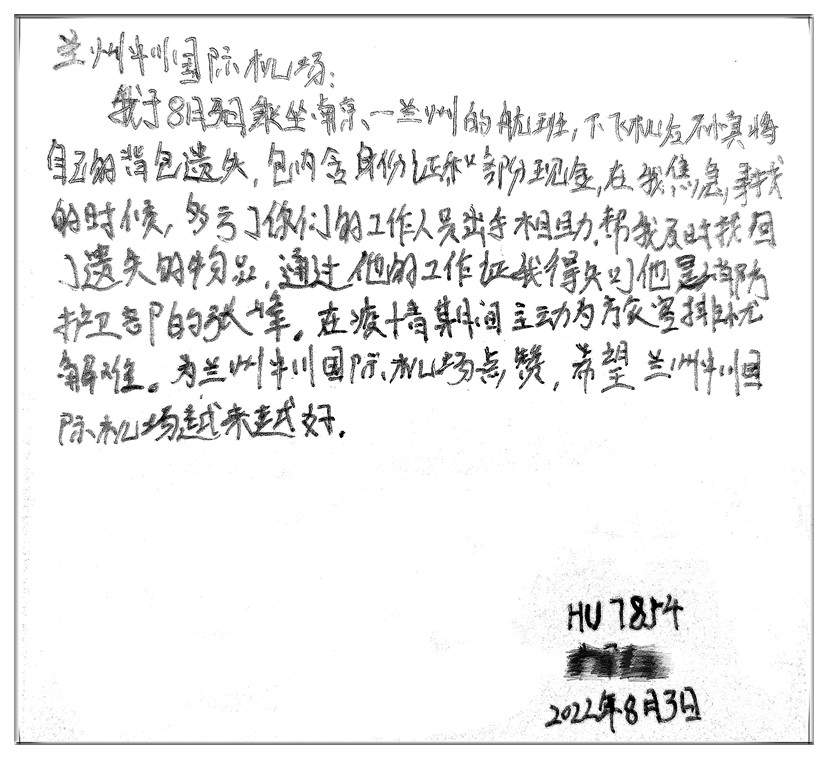 兰州中川国际机场:
我于8月3日乘坐南京—兰州的航班,下飞机后不慎将
自己的背包遗失,包内含身份证和部分现金,在我焦急寻找
的时候,多亏了你们的工作人员出手相助,帮我及时找回
了遗失的物品,通过他的工作证我得知他是消防
护卫部的张峰。在疫情期间主动为旅客排忧
解难。为兰州中川国际机场点赞,希望兰州中川国
际机场越来越好.
HU7854
2022年8月3日